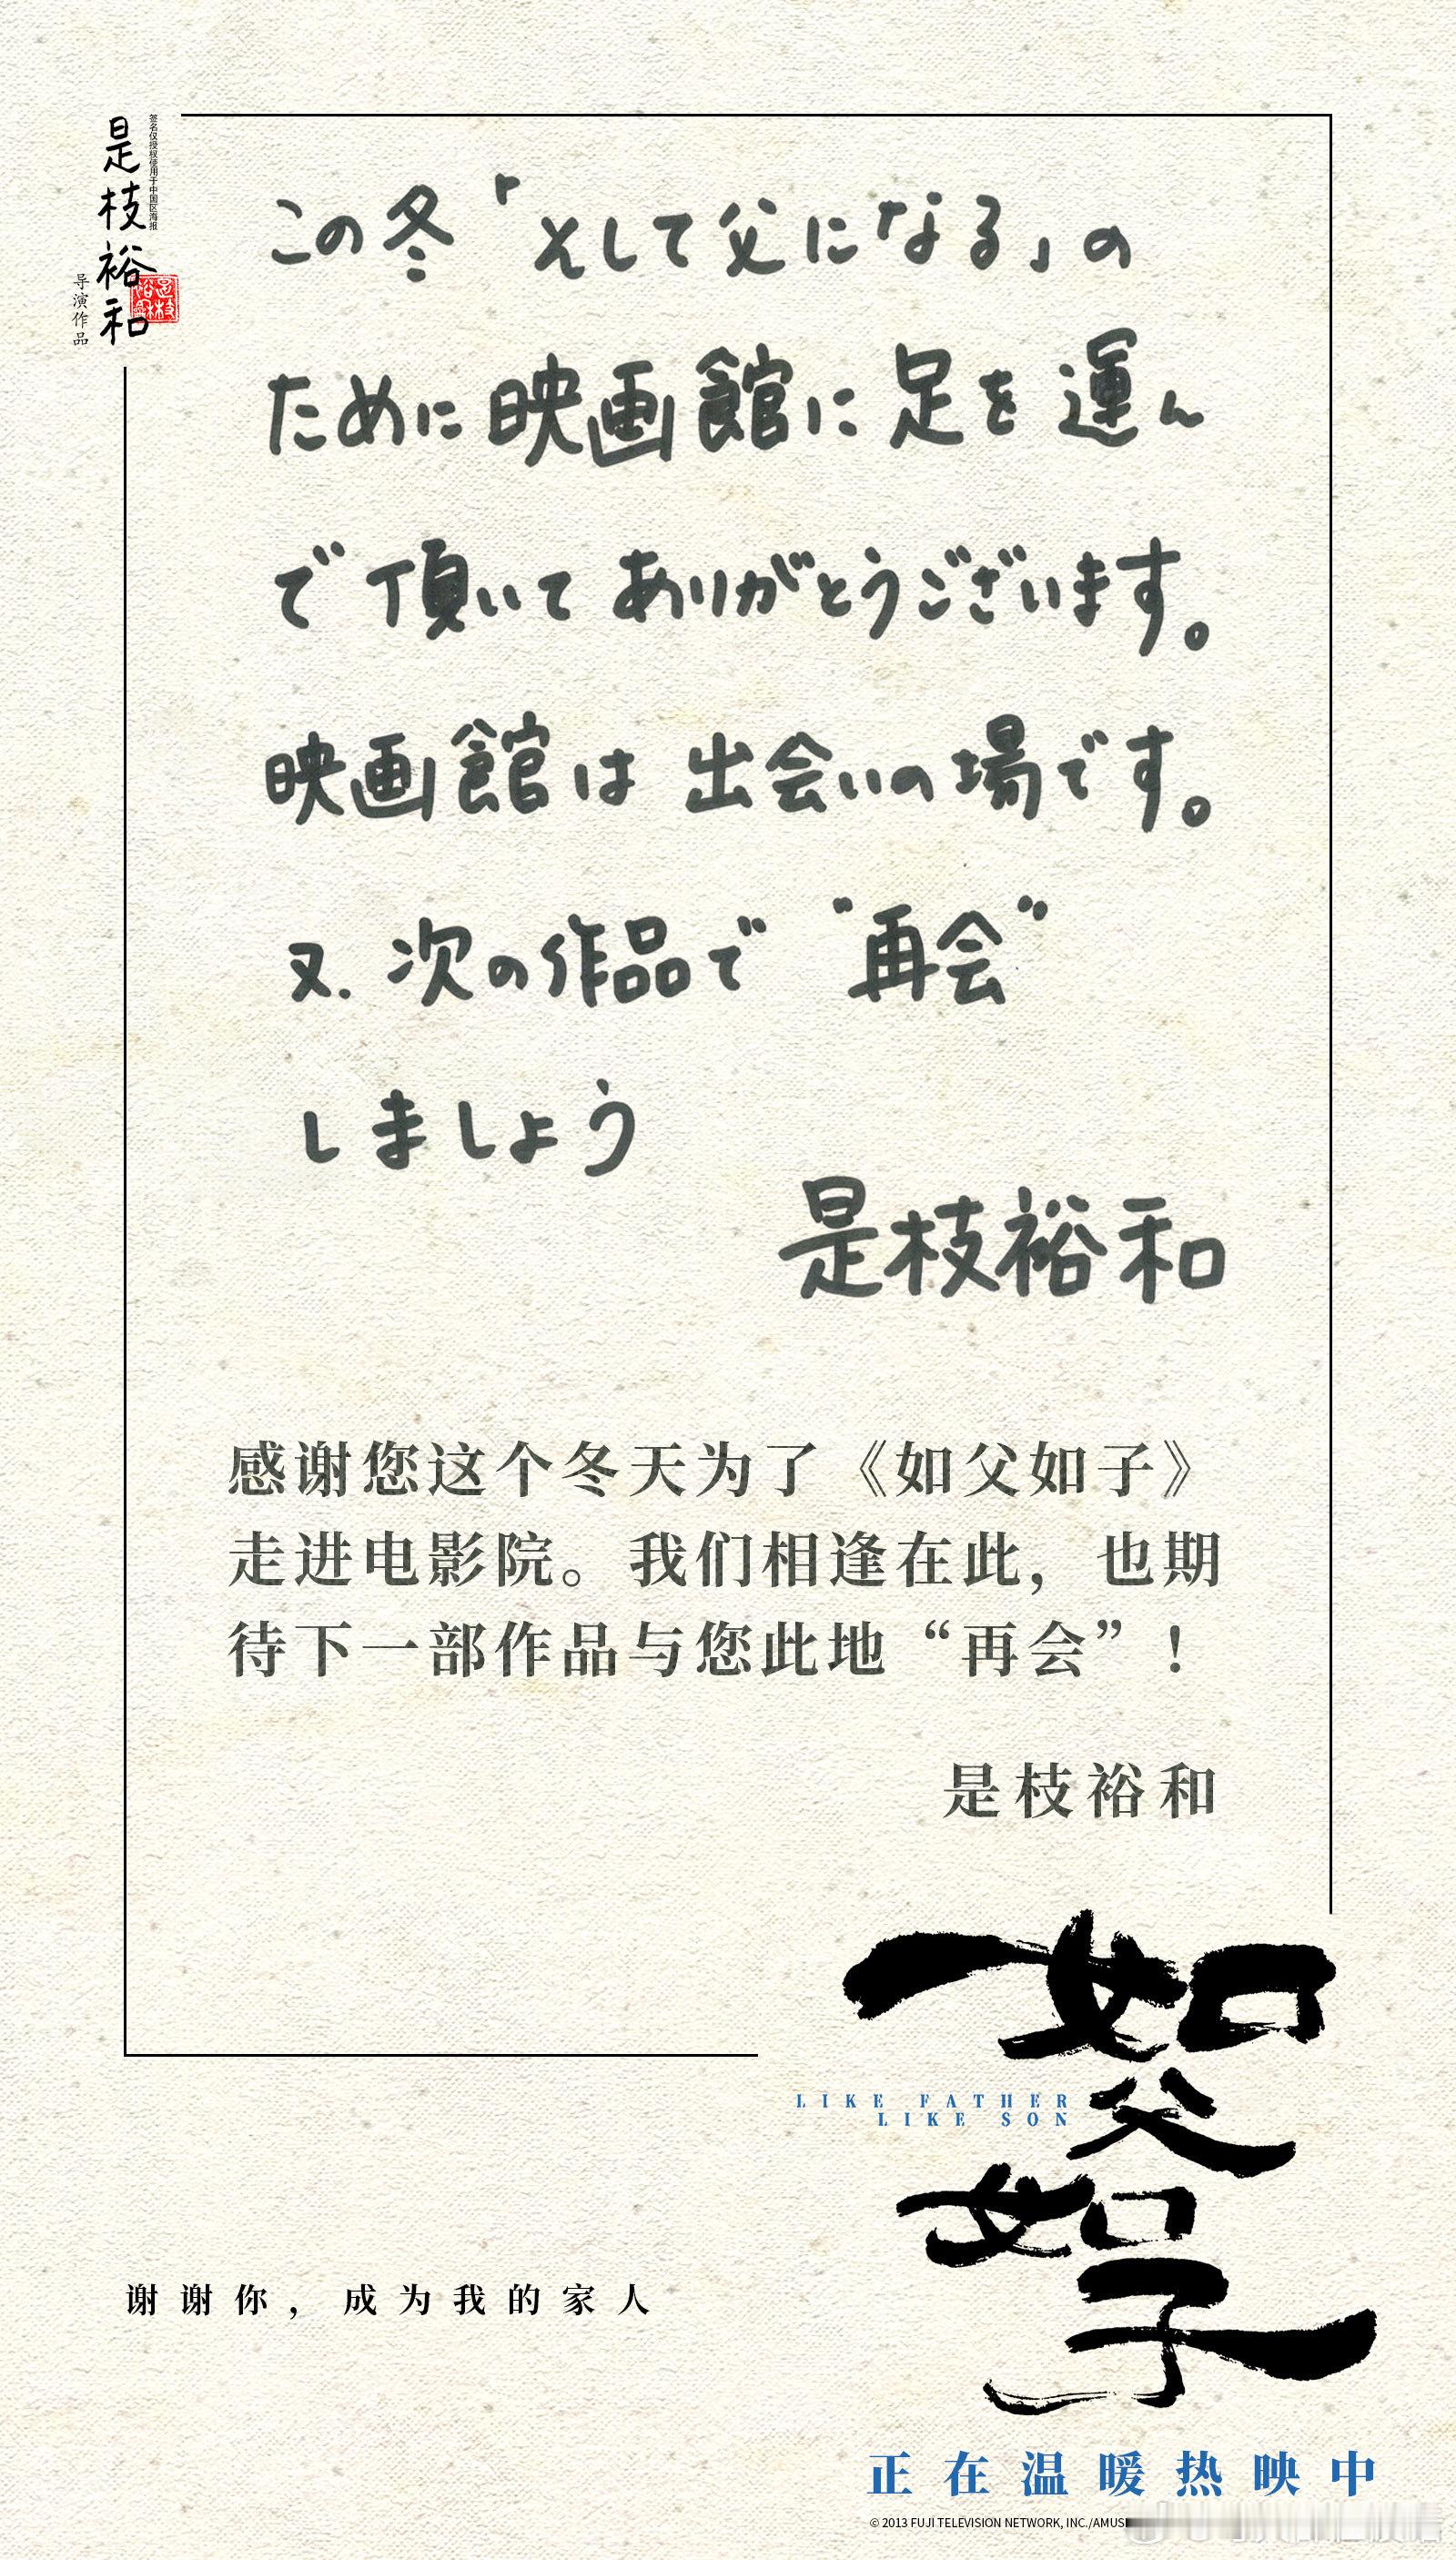 是枝裕和
签名仅授权使用于中国区海报
导演作品
この冬「そして父になる」の
ために映画館に足を運ん
で頂いてありがとうございます。
映画館は出会いの場です。
又.次の作品で“再会”
しましょう
是枝裕和
感谢您这个冬天为了《如父如子》
走进电影院。我们相逢在此，也期
待下一部作品与您此地“再会”！
是枝裕和
如父如子
LIKE FATHER
LIKE SON
谢谢你，成为我的家人
正在温暖热映中
© 2013 FUJI TELEVISION NETWORK, INC./AMUS